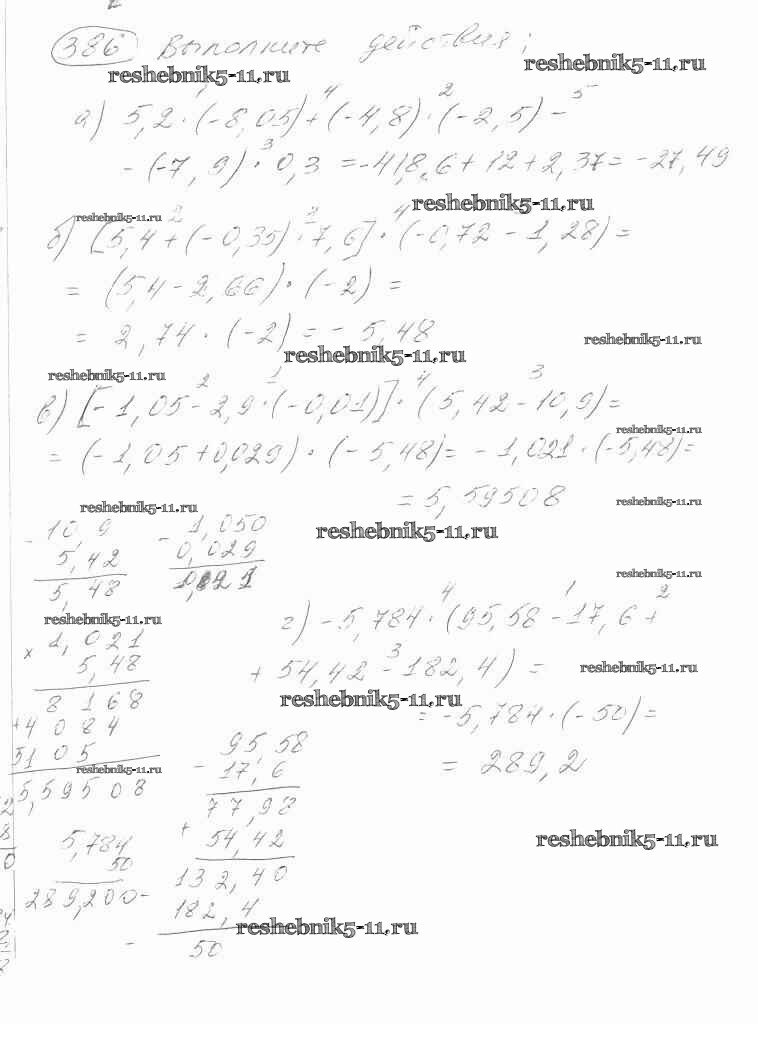 386 Выполните действия;
reshebnik5-11.ru reshebnik5-11.ru
1 4 2 5
а) 5,2·(-8,05)+(-4,8)·(-2,5)-
3
-(-7,9)·0,3=-41,86+12+2,37=-27,49
reshebnik5-11.ru
reshebnik5-11.ru 2 2 4
б) [5,4+(-0,35)·7,6]·(-0,72-1,28)=
=(5,4-2,66)·(-2)=
=2,74·(-2)=-5,48
reshebnik5-11.ru
reshebnik5-11.ru
reshebnik5-11.ru 2 1 4 3
в) [-1,05-2,9·(-0,01)]·(5,42-10,9)=
reshebnik5-11.ru
=(-1,05+0,029)·(-5,48)=-1,021·(-5,48)=
=5,59508
reshebnik5-11.ru
reshebnik5-11.ru
reshebnik5-11.ru
-10,9 -1,050
5,42 0,029
5,48 1,021
reshebnik5-11.ru
4 1 2
г) -5,784·(95,58-17,6+
reshebnik5-11.ru
3
+54,42-182,4)=
reshebnik5-11.ru
reshebnik5-11.ru
=-5,784·(-50)=
=289,2
x 1,021
5,48
8168
+4084
5105
reshebnik5-11.ru
5,59508
95,58
-17,6
77,98
+54,42
132,40
182,4
-50
5,784
50
289,200-
reshebnik5-11.ru
reshebnik5-11.ru